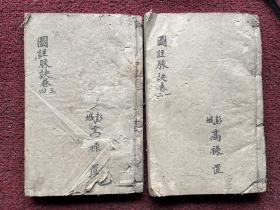 圖註脉訣卷三
四
彭城
高祿置
圖註脉訣卷一
二
彭城
高祿置